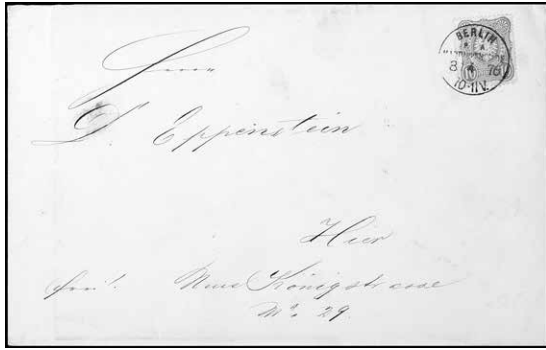 BERLIN
8 4 76
10-11V.
Herrn
D. Eppenstein
Hier
Neue Königstrasse
No. 29.